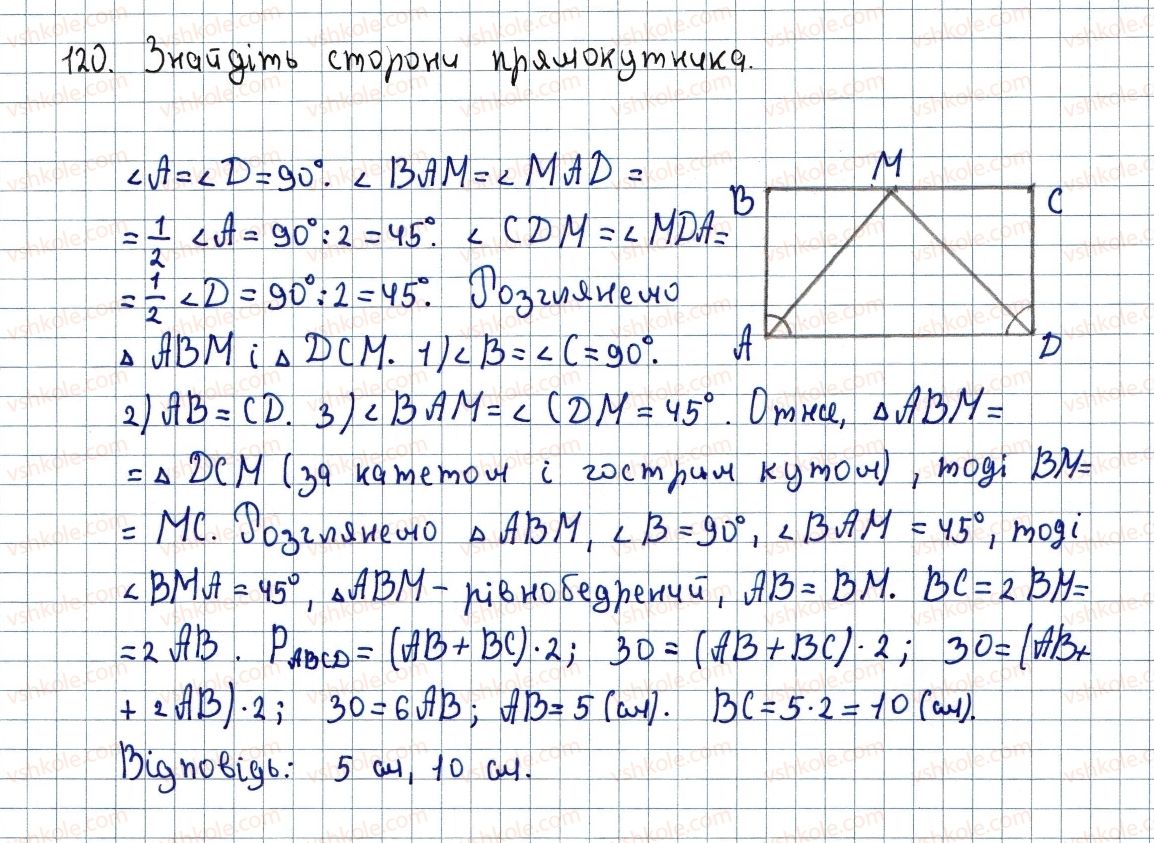 120. Знайдіть сторони прямокутника.
∠A=∠D=90°. ∠BAM=∠MAD =
= 1/2 ∠A = 90°:2 = 45°. ∠CDM = ∠MDA=
= 1/2 ∠D = 90°:2 = 45°. Розглянемо
△ABM і △DCM. 1) ∠B = ∠C = 90°.
2) AB = CD. 3) ∠BAM = ∠CDM = 45°. Отже, △ABM =
= △DCM (за катетом і гострим кутом), тоді BM=
= MC. Розглянемо △ABM, ∠B = 90°, ∠BAM = 45°, тоді
∠BMA = 45°, △ABM – рівнобедрений, AB = BM. BC = 2BM=
= 2AB. P ABCD = (AB + BC)·2; 30 = (AB + BC)·2; 30 = (AB+
+ 2AB)·2; 30 = 6AB; AB = 5 (см). BC = 5·2 = 10 (см).
Відповідь: 5 см, 10 см.
B
M
C
A
D
vshkole.com